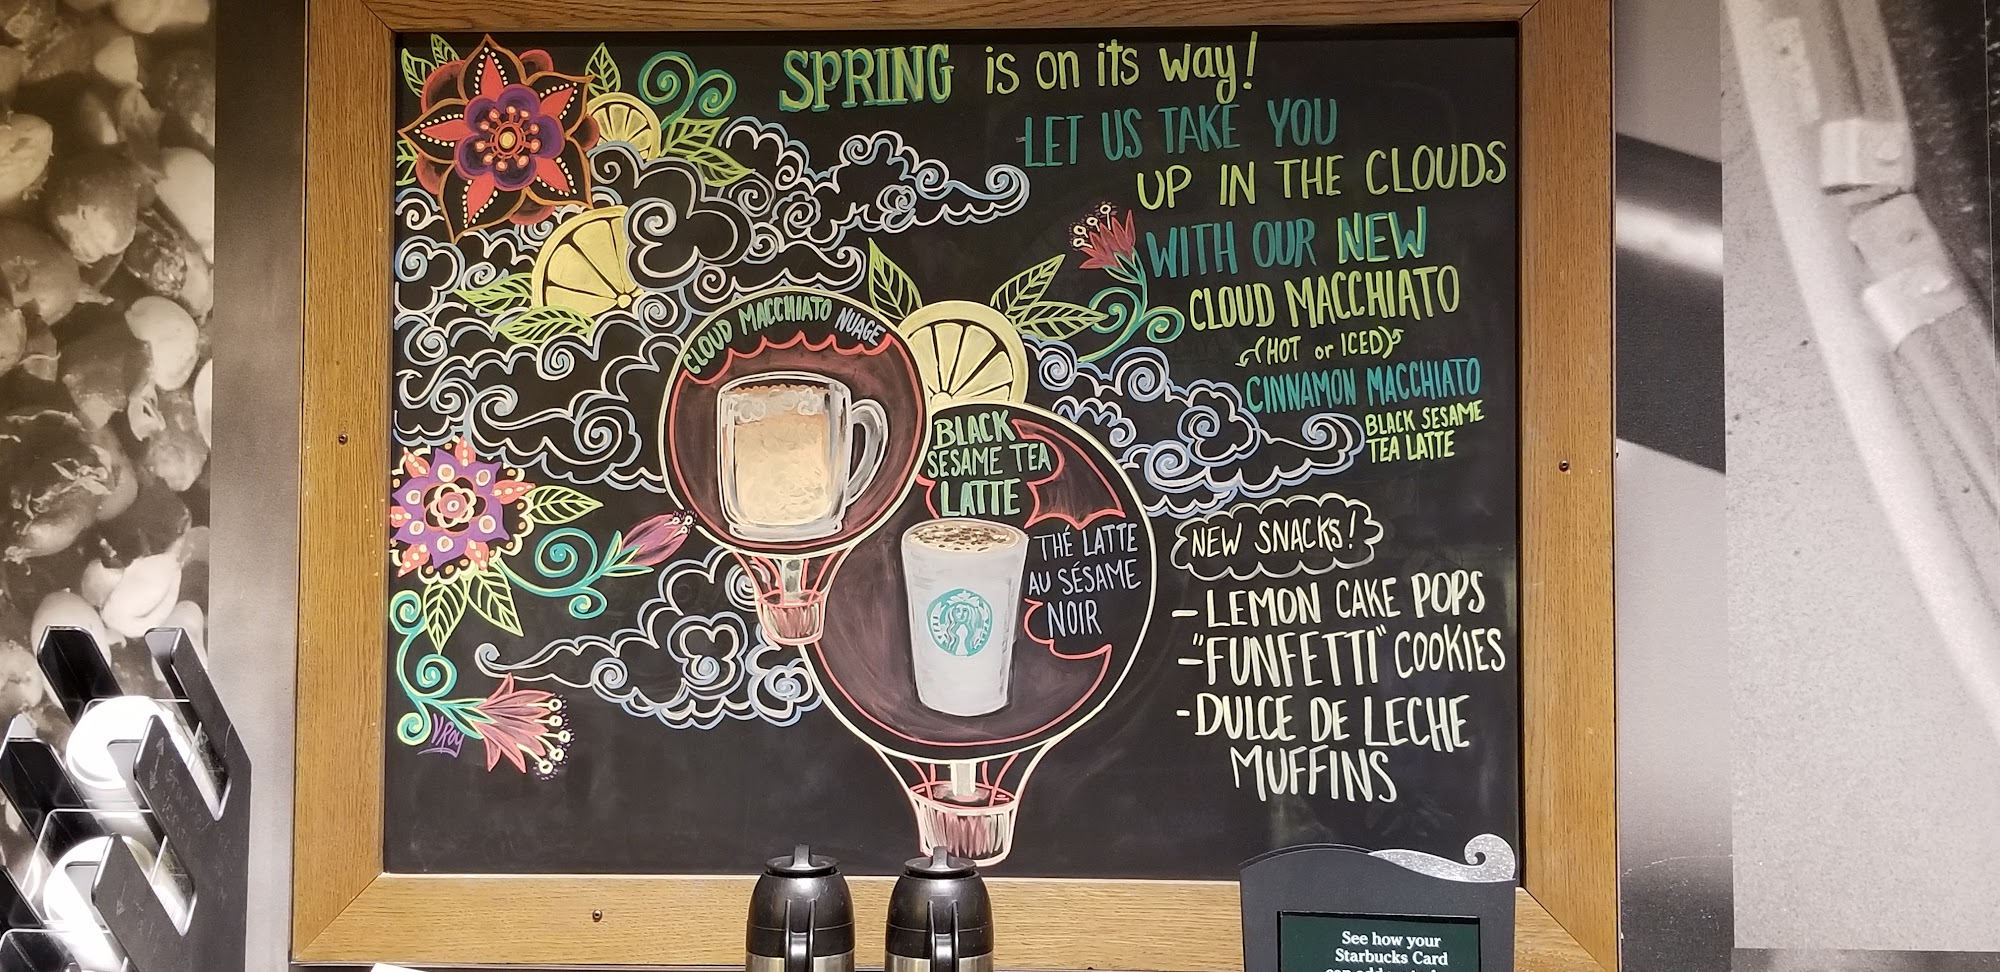 SPRING is on its way!
LET US TAKE YOU
UP IN THE CLOUDS
WITH OUR NEW
CLOUD MACCHIATO
(HOT or ICED)
CINNAMON MACCHIATO
BLACK SESAME
TEA LATTE
CLOUD MACCHIATO NUAGE
BLACK
SESAME TEA
LATTE
THÉ LATTE
AU SÉSAME
NOIR
NEW SNACKS!
- LEMON CAKE POPS
- "FUNFETTI" COOKIES
- DULCE DE LECHE
MUFFINS
V.Roy
See how your
Starbucks Card